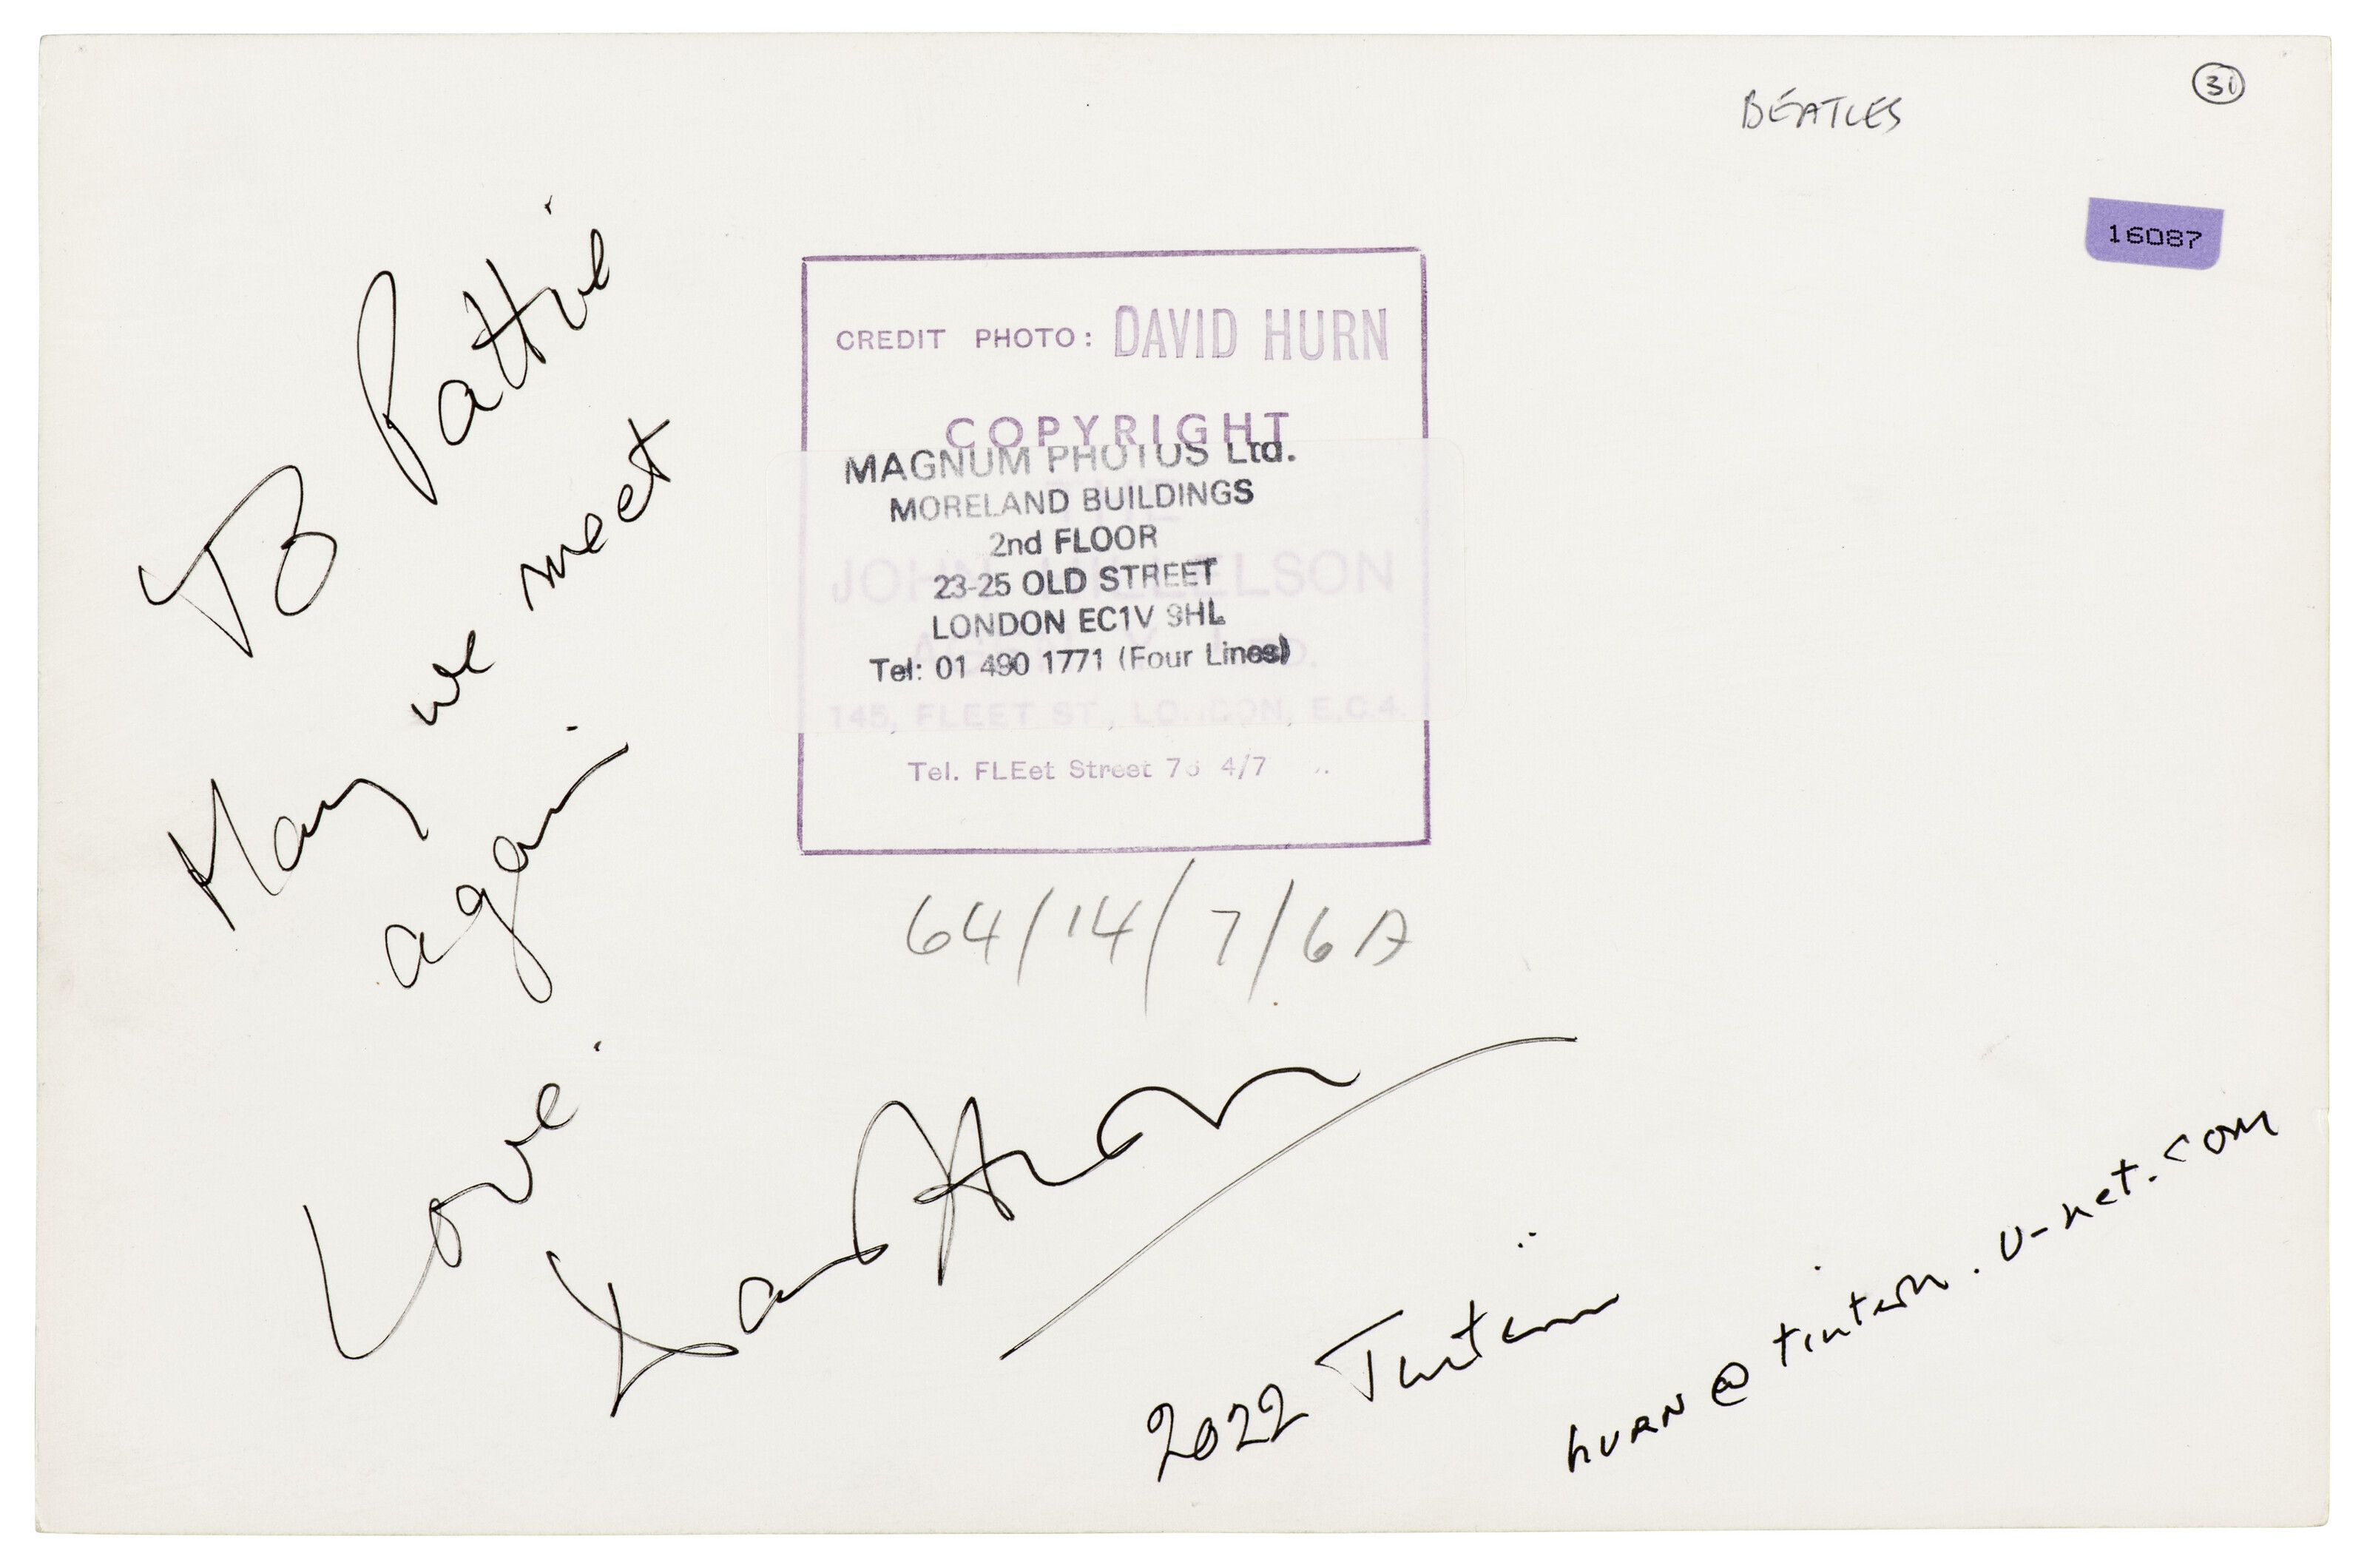 BEATLES
31
16087
To Pattie
May we meet
again
Love.
David Hurn
CREDIT PHOTO: DAVID HURN
COPYRIGHT
MAGNUM PHOTOS Ltd.
MORELAND BUILDINGS
2nd FLOOR
23-25 OLD STREET
LONDON EC1V 9HL
Tel: 01 490 1771 (Four Lines)
JOHN HILLELSON
145, FLEET ST., LONDON, E.C.4.
Tel. FLEet Street 4/7
64/14/7/6A
2022 Tintern
hurn@tintern.u-net.com